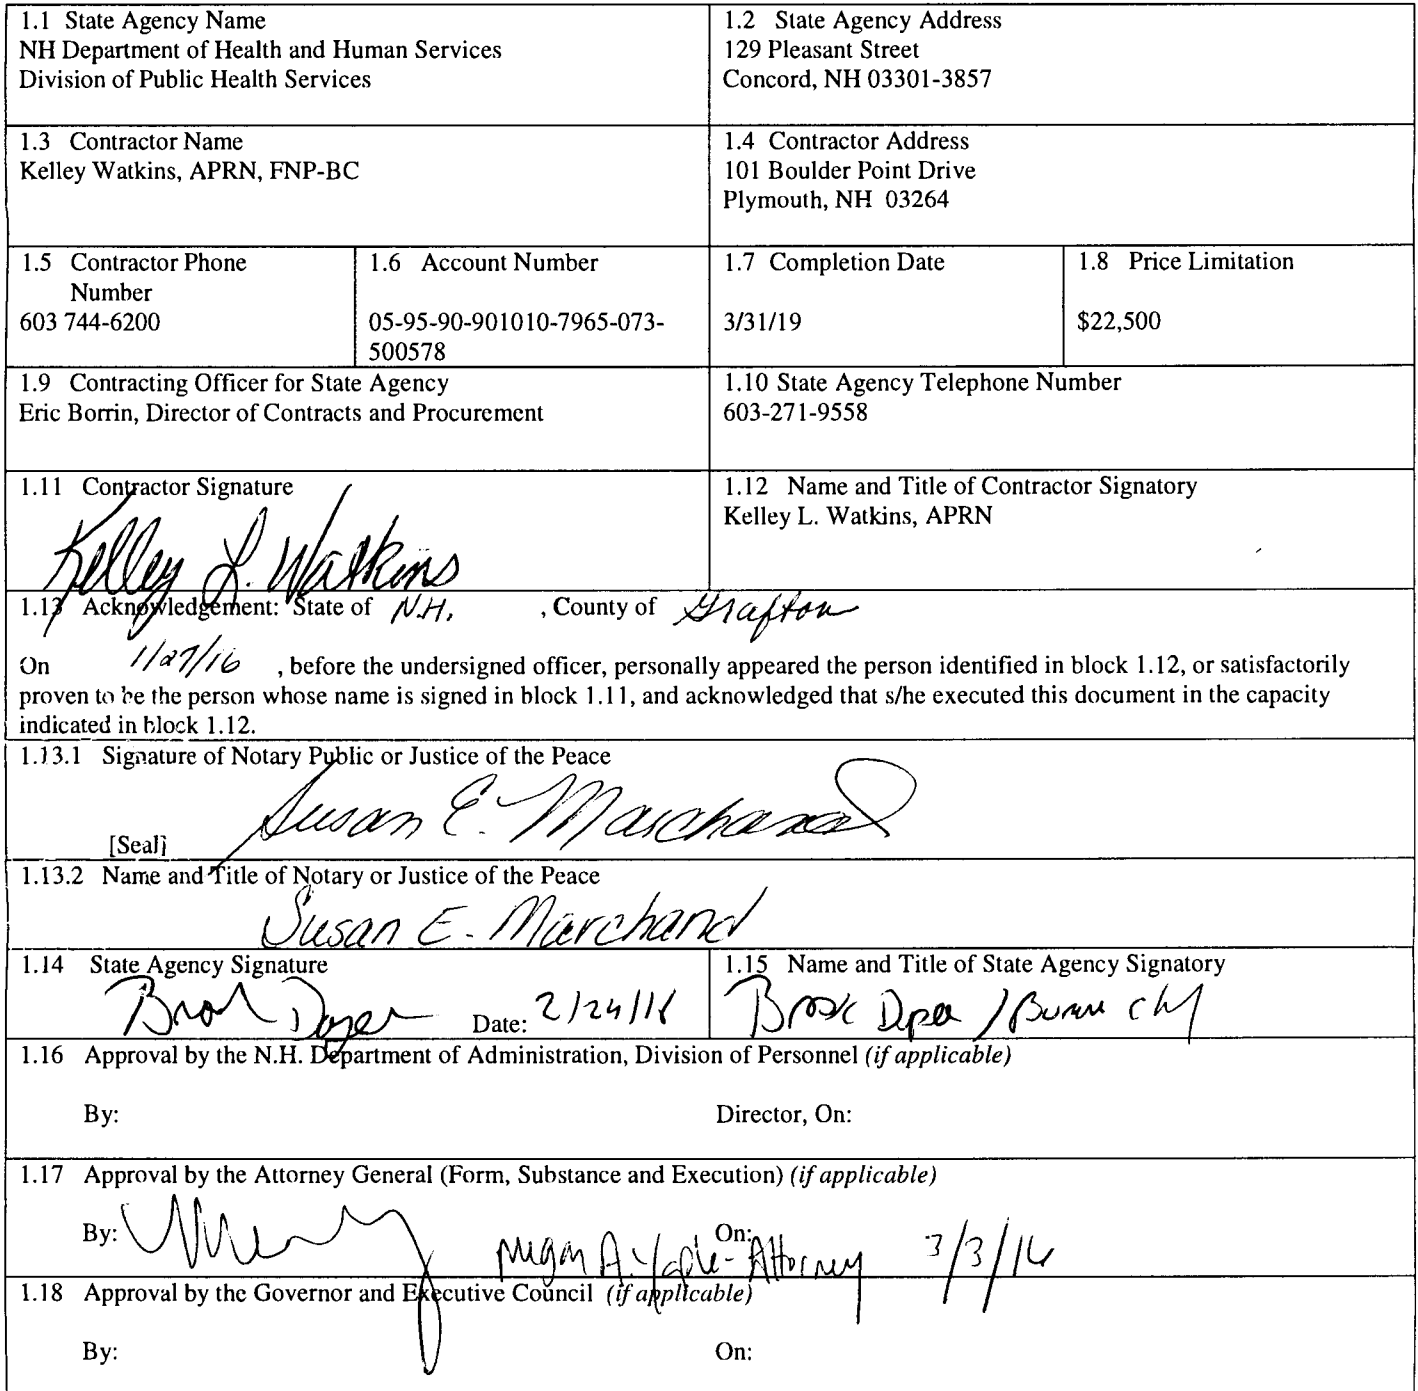 1.1 State Agency Name
NH Department of Health and Human Services
Division of Public Health Services
1.2 State Agency Address
129 Pleasant Street
Concord, NH 03301-3857
1.3 Contractor Name
Kelley Watkins, APRN, FNP-BC
1.4 Contractor Address
101 Boulder Point Drive
Plymouth, NH 03264
1.5 Contractor Phone
Number
603 744-6200
1.6 Account Number
05-95-90-901010-7965-073-
500578
1.7 Completion Date
3/31/19
1.8 Price Limitation
$22,500
1.9 Contracting Officer for State Agency
Eric Borrin, Director of Contracts and Procurement
1.10 State Agency Telephone Number
603-271-9558
1.11 Contractor Signature
Kelley L. Watkins
1.12 Name and Title of Contractor Signatory
Kelley L. Watkins, APRN
1.13 Acknowledgement: State of N.H. , County of Grafton
On 1/27/16 , before the undersigned officer, personally appeared the person identified in block 1.12, or satisfactorily
proven to be the person whose name is signed in block 1.11, and acknowledged that s/he executed this document in the capacity
indicated in block 1.12.
1.13.1 Signature of Notary Public or Justice of the Peace
Susan E. Marchand
[Seal]
1.13.2 Name and Title of Notary or Justice of the Peace
Susan E. Marchand
1.14 State Agency Signature
Date: 2/24/16
1.15 Name and Title of State Agency Signatory
1.16 Approval by the N.H. Department of Administration, Division of Personnel (if applicable)
By: Director, On:
1.17 Approval by the Attorney General (Form, Substance and Execution) (if applicable)
By: Megan A. Yaple - Attorney On: 3/3/16
1.18 Approval by the Governor and Executive Council (if applicable)
By: On: